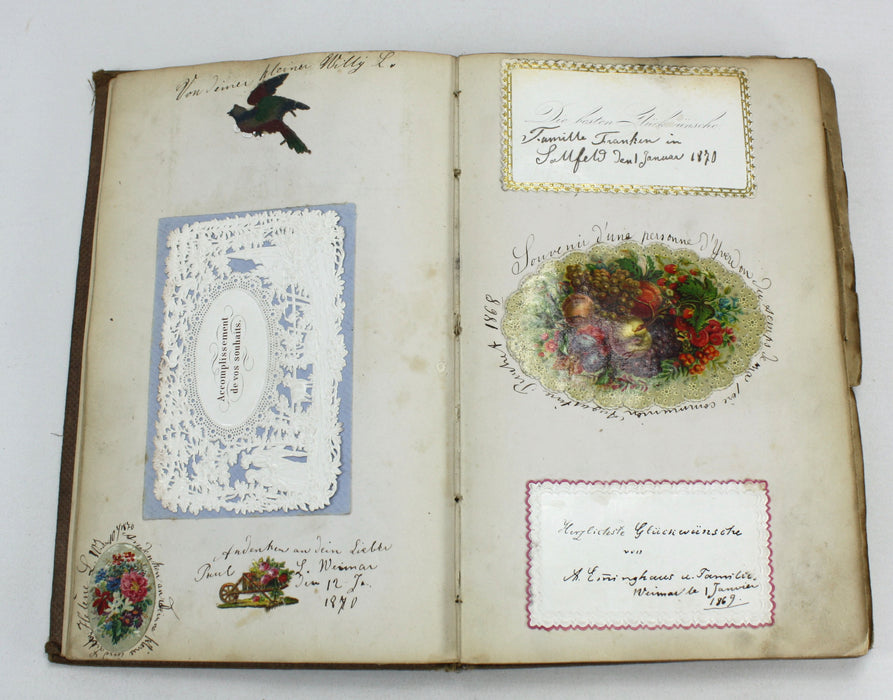 Von deiner kleiner Willy L.
Accomplissement
de vos souhaits.
Andenken an dein Liebte
Paul L. Weimar
den 12 Ja.
1870
Helene L.
Die besten Glückwünsche
Familie Franken in
Sallfeld den 1 Januar 1870
Souvenir d'une personne d'Yverdon
du temps de ma 1ère communion Augustine
1868
Herzlichste Glückwünsche
von
A. Eminghaus u. Familie.
Weimar le 1 Janvier
1869.